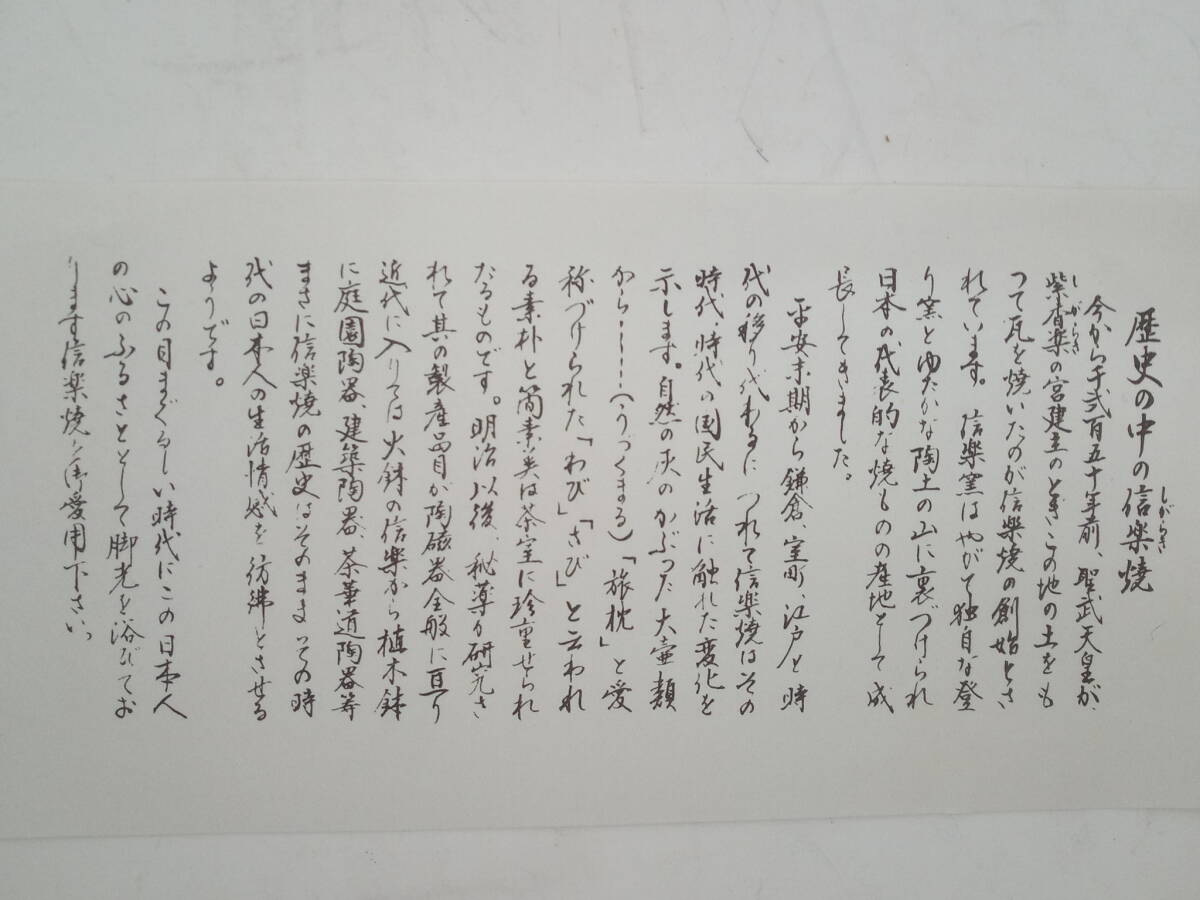 歴史の中の信楽焼
しがらき
今から千弐百五十年前、聖武天皇が
紫香楽の宮建立のときこの地の土をも
しがらき
つて瓦を焼いたのが信楽焼の創始とさ
れています。信楽窯はやがて独自な登
り窯とゆたかな陶土の山に裏づけられ
日本の代表的な焼ものの産地として成
長してきました。
平安末期から鎌倉、室町、江戸と時
代の移り代わるにつれて信楽焼はその
時代、時代の国民生活に触れた変化を
示します。自然の灰のかぶった大壷類
から‥‥(うづくまる)「旅枕」と愛
称づけられた「わび」「さび」と云われ
る素朴と簡素美は茶室に珍重せられ
たるものです。明治以後、秘薬が研究さ
れて其の製産品目が陶磁器全般に亘り
近代に入りては火鉢の信楽から植木鉢
に庭園陶器、建築陶器、茶華道陶器等
まさに信楽焼の歴史はそのままその時
代の日本人の生活情感を彷彿とさせる
ようです。
この目まぐるしい時代にこの日本人
の心のふるさととして脚光を浴びてお
ります信楽焼を御愛用下さい。